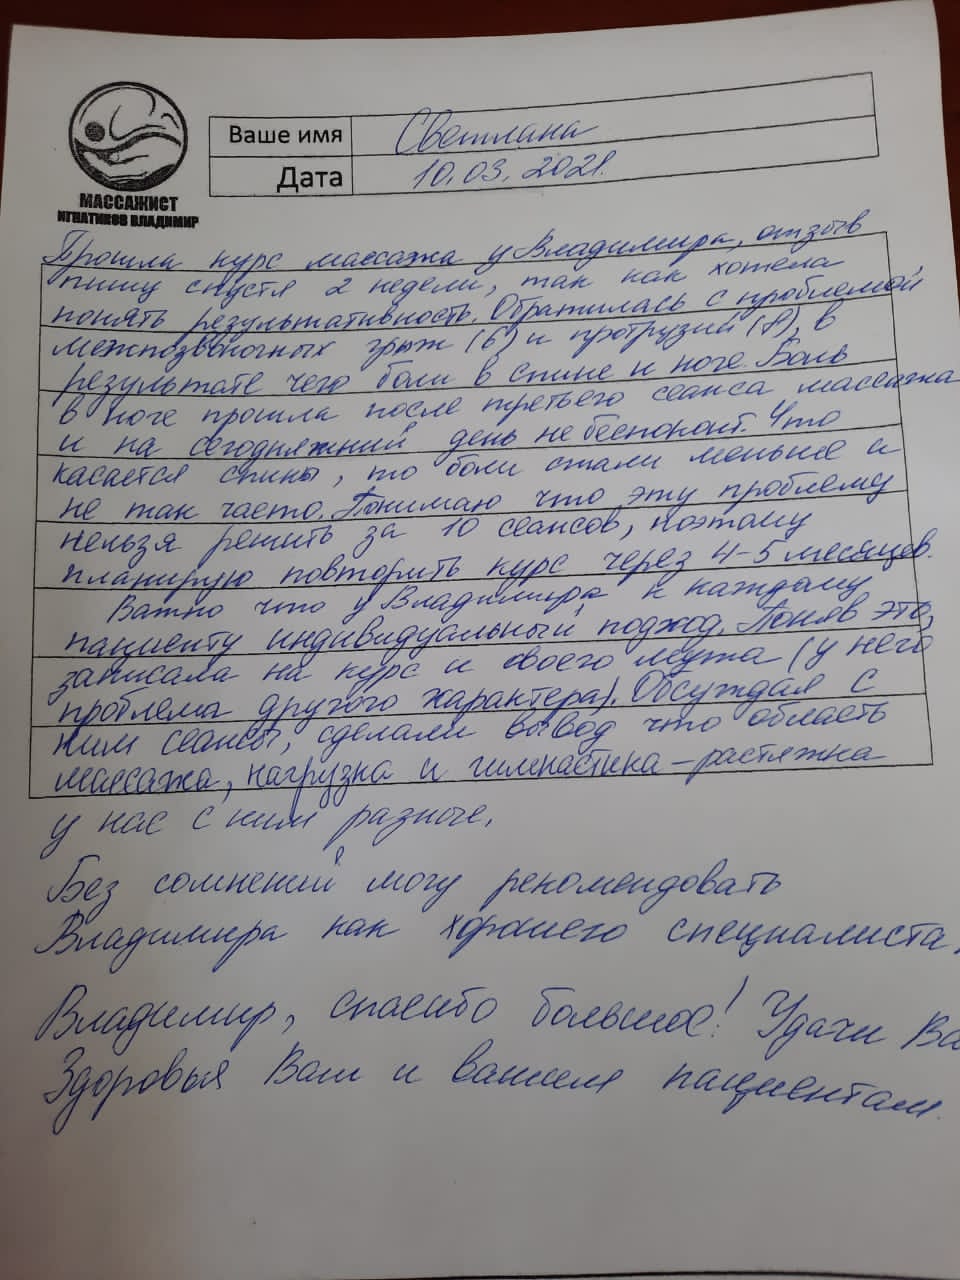 Ваше имя Светлана
Дата 10.03.2021.
МАССАЖИСТ
ИГНАТИКОВ ВЛАДИМИР
Прошла курс массажа у Владимира, отзыв
пишу спустя 2 недели, так как хотела
понять результативность. Обратилась с проблемой
межпозвоночных грыж (6) и протрузий (8), в
результате чего боли в спине и ноге. Боль
в ноге прошла после третьего сеанса массажа
и на сегодняжний день не беспокоит. Что
касается спины, то боли стали меньше и
не так часто. Понимаю что эту проблему
нельзя решить за 10 сеансов, поэтому
планирую повторить курс через 4-5 месяцев.
Важно что у Владимира к каждому
пациенту индивидуальный подход. Поняв это,
записала на курс и своего мужа (у него
проблема другого характера). Обсуждая с
ним сеансы, сделали вывод что область
массажа, нагрузка и гимнастика-растяжка
у нас с ним разные.
Без сомнений могу рекомендовать
Владимира как хорошего специалиста.
Владимир, спасибо большое! Удачи Ва
Здоровья Вам и вашим пациентам.